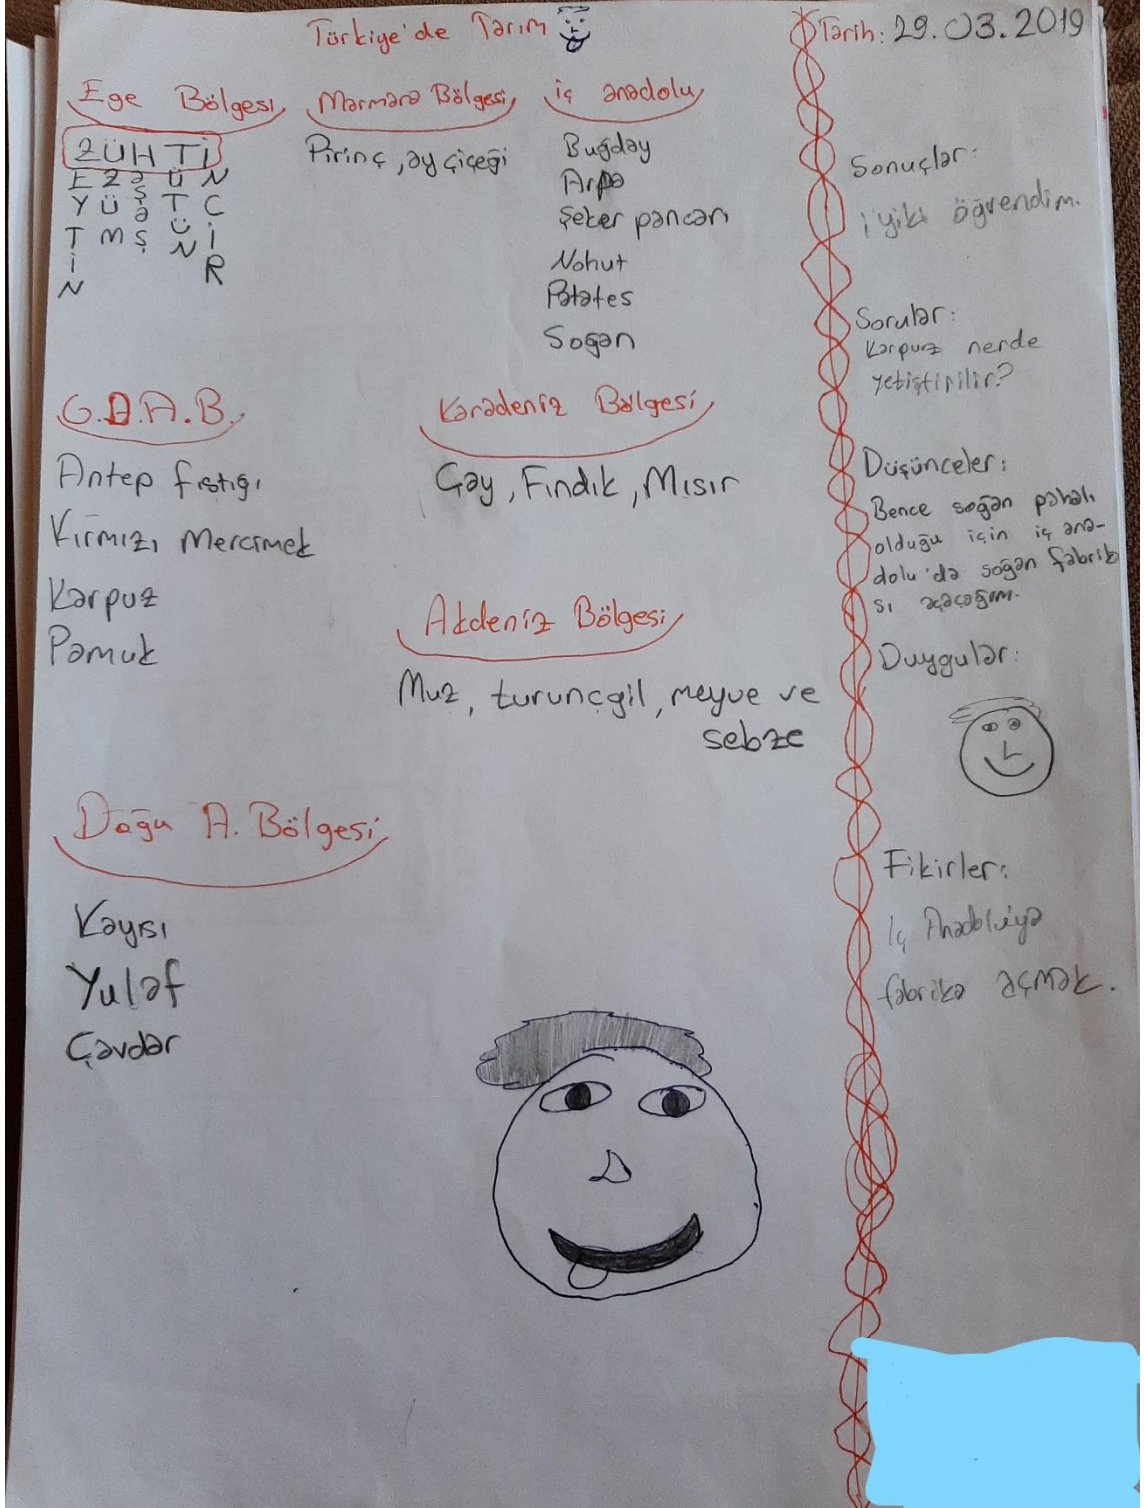 Türkiye'de Tarım
Tarih: 29.03.2019
Ege Bölgesi
ZÜHTİ
E Z A Ü N
Y Ü Ş T C
T M A Ü İ
İ Ş N R
N
Marmara Bölgesi
Pirinç, ay çiçeği
iç anadolu
Buğday
Arpa
Şeker pancarı
Nohut
Patates
Soğan
G.D.A.B.
Antep fıstığı
Kırmızı Mercimek
Karpuz
Pamuk
Karadeniz Bölgesi
Çay, Fındık, Mısır
Akdeniz Bölgesi
Muz, turunçgil, meyve ve
sebze
Doğu A. Bölgesi
Kayısı
Yulaf
Çavdar
Sonuçlar:
iyiki öğrendim.
Sorular:
Karpuz nerde
yetiştirilir?
Düşünceler:
Bence soğan pahalı
olduğu için iç ana-
dolu'da soğan fabrik
sı açaçağım.
Duygular:
Fikirler:
İç Anadolu'ya
fabrika açmak.